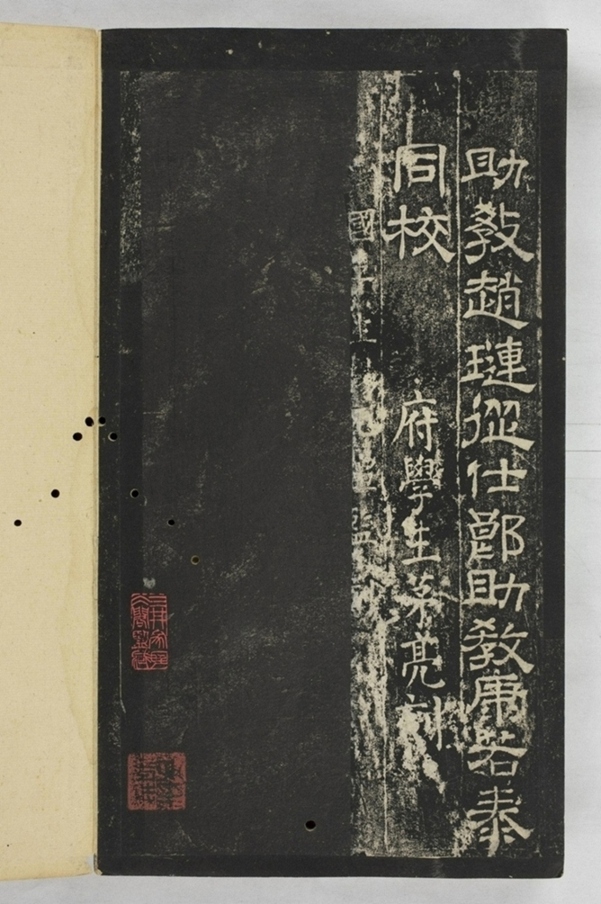 助教趙璉從仕郎助教康若泰
同校　府學生茅亮刻
國學生